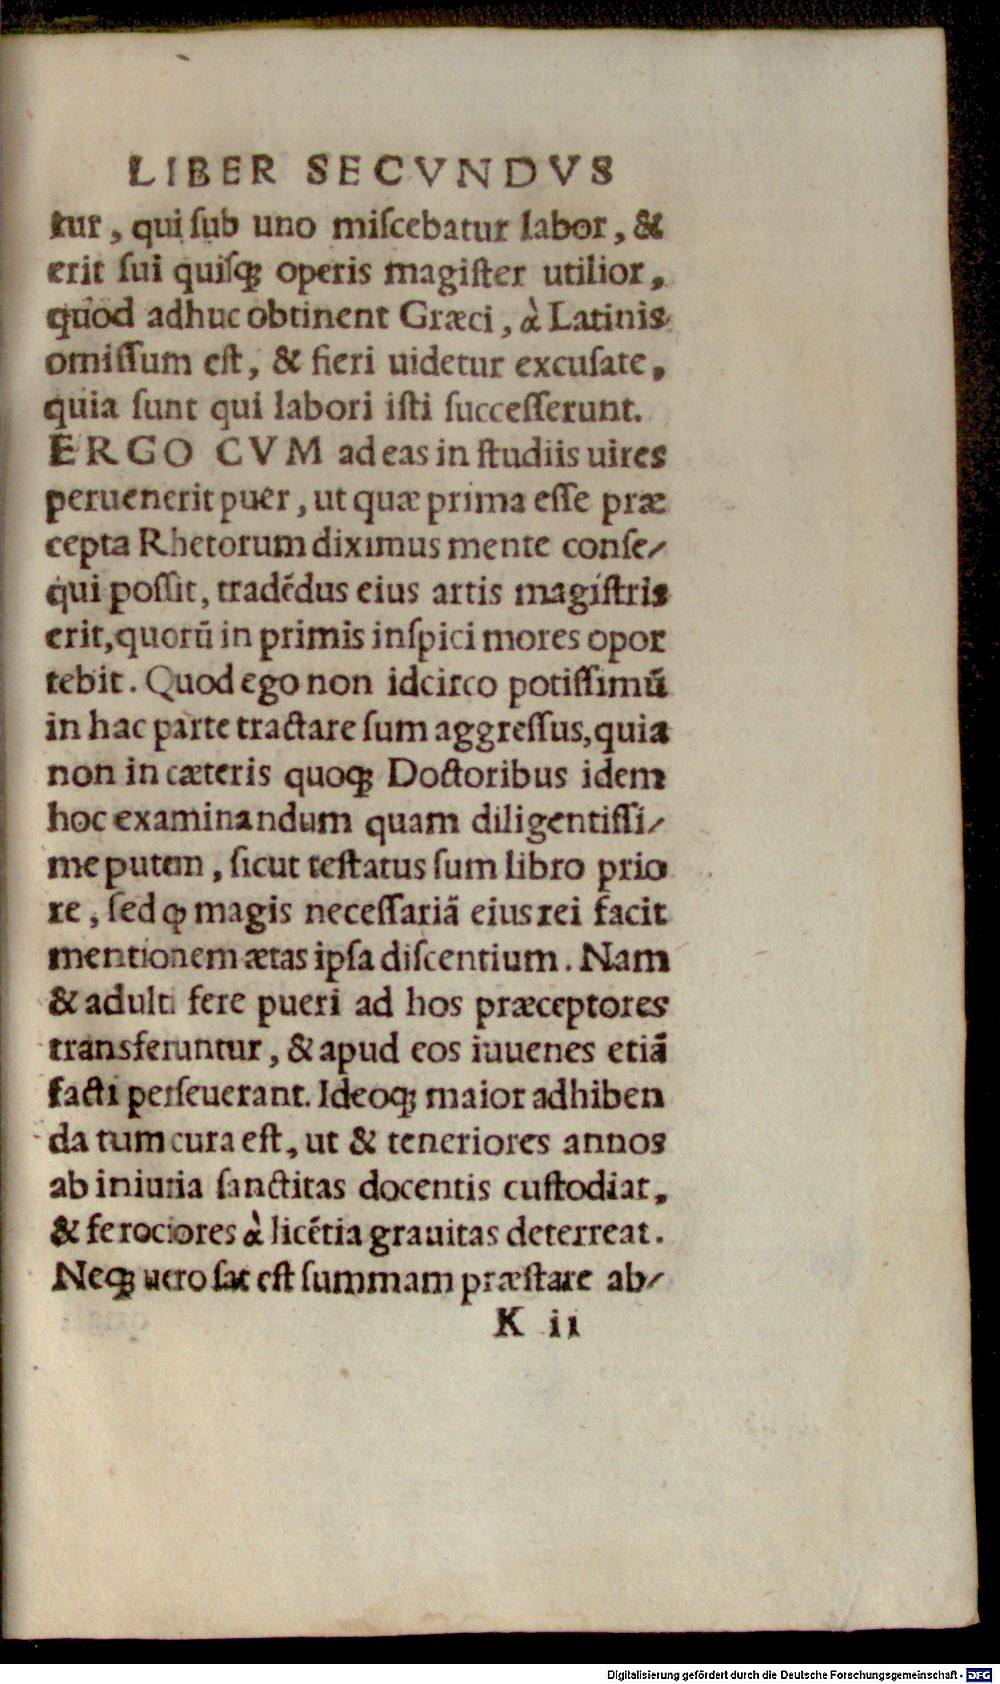 LIBER SECVNDVS
tur, qui ſub uno miſcebatur labor, &
erit ſui quiſq; operis magiſter utilior,
quod adhuc obtinent Græci, à Latinis
omiſſum eſt, & fieri uidetur excuſate,
quia ſunt qui labori iſti ſucceſſerunt.
ERGO CVM ad eas in ſtudiis uires
peruenerit puer, ut quæ prima eſſe præ
cepta Rhetorum diximus mente conſe/
qui poſſit, tradẽdus eius artis magiſtris
erit, quorũ in primis inſpici mores opor
tebit. Quod ego non idcirco potiſſimũ
in hac parte tractare ſum aggreſſus, quia
non in cæteris quoq; Doctoribus idem
hoc examinandum quam diligentiſſi/
me putem, ſicut teſtatus ſum libro prio
re, ſed ꝙ magis neceſſariã eius rei facit
mentionem ætas ipſa diſcentium. Nam
& adulti fere pueri ad hos præceptores
transferuntur, & apud eos iuuenes etiã
facti perſeuerant. Ideoq; maior adhiben
da tum cura eſt, ut & teneriores annos
ab iniuria ſanctitas docentis cuſtodiat,
& ferociores à licẽtia grauitas deterreat.
Neq; uero ſat eſt ſummam præſtare ab/
K ii
Digitalisierung gefördert durch die Deutsche Forschungsgemeinschaft - DFG